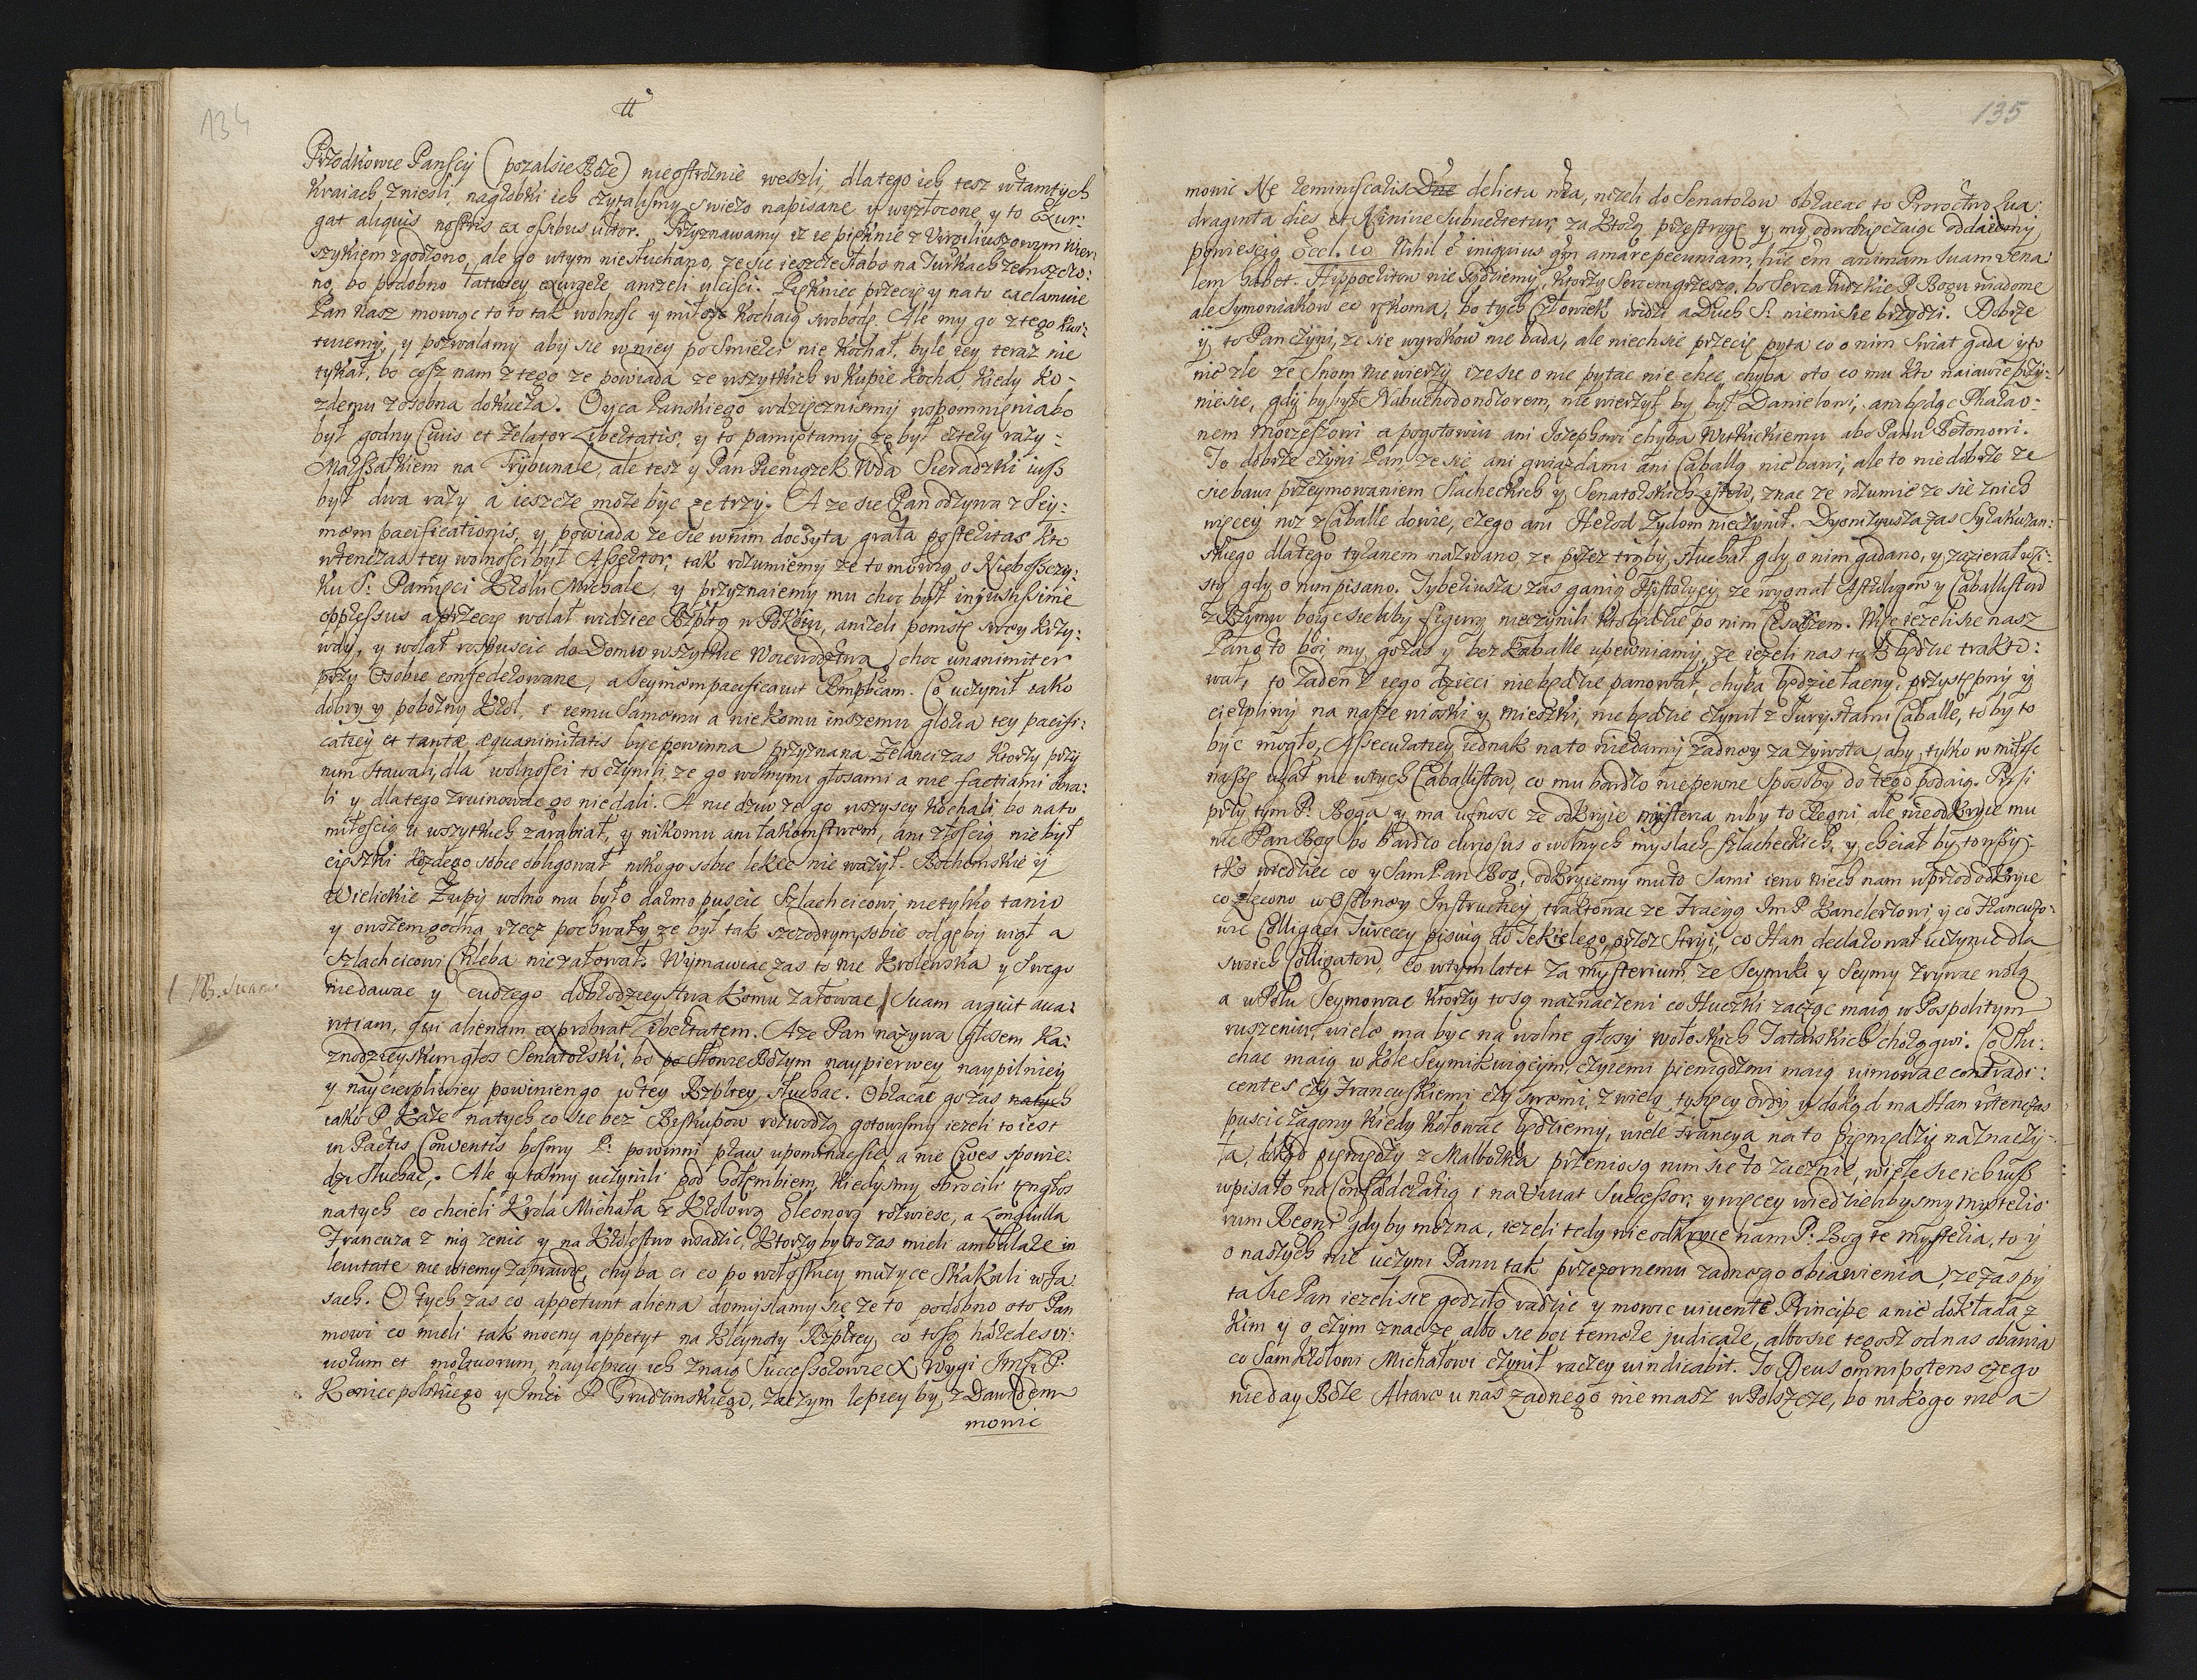 134
Przodkowie Panscy (pozalsie Boze) nieostroznie weszli, dlatego ich tesz w tamtych
kraiach zniesli, nagrobki ich czytalismy swiezo napisane y wyzłocone y to Exur-
gat aliquis nostris ex ossibus ultor. Przyznawamy iz ie pięknie z Virgiliuszowym wier
szykiem zgodzono, ale go wtym niesłuchano, ze sie ieszcze słabo na Turkach zemszczo:
no, bo podobno łatwiey exurgere anizeli ulcisci. Piękniec przecię y na to exclamuie
Pan Nasz mowiąc to to tak wolnosc y miłosc kochaią swobodę. Ale my go z tego kwi-
tuiemy, y pozwalamy aby sie w niey po smierci nie kochał, byle iey teraz nie
tykał, bo cosz nam z tego ze powiada ze wszytkich w kupie kocha, kiedy ko-
zdemu zosobna dokucza. Oyca Panskiego wdzięcznismy wspomnienia bo
był godny Civis et Zelator Libertatis, y to pamiętamy ze był cztery razy
Marszałkiem na Trybunale, ale tesz y Pan Pieniązek Wda Sieradzki iusz
był dwa razy a ieszcze moze byc ze trzy. A ze sie Pan odzywa z Sey-
mem pacificationis, y powiada ze sie w nim doczyta grata posteritas kto
wtenczas tey wolnosci był Assertor, tak rozumiemy ze to mowią o Nieboszczy-
ku S. Pamięci Krolu Michale, y przyznaiemy mu choc był iniustissime
oppressus a przecię wolał widziec Rzpltą w Pokoiu, anizeli pomstę swey krzy-
wdy, y wolał rospuscic do Domu wszytkie Woiewodztwa choc unanimiter
przy Osobie confederowane, a Seymem pacificavit Rempbcam. Co uczynił iako
dobry y pobozny Krol, i iemu Samemu a nie komu inszemu gloria tey pacifi-
catiey et tantæ æquanimitatis byc powinna przyznana Zelanci zas ktorzy przy
nim stawali, dla wolnosci to czynili, ze go wolnymi głosami a nie factiami obra-
li y dlatego zruinowac go niedali. A nie dziw ze go wszyscy kochali, bo na to
miłoscią u wszytkich zarabiał, y nikomu ani łakomstwem, ani złoscią nie był
cięszki kozdego sobie obligował nikogo sobie lekce nie wazył. Bochenskie y
Wielickie Zupy wolno mu było darmo puscic Szlachcicowi nietylko tanio
y owszem godna rzecz pochwały ze był tak szczodrym sobie od gęby wiął a
Szlachcicowi Chleba nie załował. Wymawiac zas to nie Krolewska y Swego
niedawac y cudzego dobrodzieystwa komu załowac / Suam arguit ava-
ritiam, qui alienam exprobrat Libertatem. A ze Pan nazywa głosem Ka-
znodzieyskim głos Senatorski, bo po Słowie Bozym naypierwey naypilniey
y naycierpliwiey powinien go w tey Rzpltey słuchac. Obracac go zas natych
iako P. Kaze na tych co sie bez Biskupow rozwodzą gotowismy iezeli to iest
in Pactis Conventis bosmy P. powinni praw upominac sie, a nie Cives spowie-
dzi słuchac. Ale y tosmy uczynili pod Gołembiem kiedysmy obrocili ten głos
na tych co chcieli Krola Michała z Krolową Eleonorą rozwiesc, a Longivilla
Francuza z nią zenic y na Krolestwo wsadzic. Ktorzy by to zas mieli ambulare in
levitate nie wiemy zaprawdę, chyba ci co po włoskiey muzyce skakali w Ja-
sach. O tych zas co appetunt aliena domyslamy się ze to podobno oto Pan
mowi co mieli tak mocny appetyt na Kleynoty Rzpltey, co to są hæredes vi-
vorum et mortuorum, naylepiey ich znaią Successorowie X. Wygi Jmsci P.
Koniecpolskiego y Jmsci P. Grudzinskiego, zaczym lepiey by z Dawidem
mowic
NB. Suam
135
mowic Ne reminiscaris Dne delicta nra, nizeli do Senatorow obracac to Proroctwo Qua-
draginta dies et Ninive subvertetur, za ktorą przestrogę y my odwdzięczaiąc oddaiemy
powiescią Eccl. 10 Nihil e iniquius qm amare pecuniam, hic em animam suam vena
lem habet. Hippocritow nie sądziemy, ktorzy Sercem grzeszą, bo Serca ludzkie P. Bogu wiadome
ale Symoniakow co rękoma, bo tych Człowiek widzi a Duch S. niemi sie brzydzi. Dobrze
y to Pan czyni, ze sie wyrokow nie bada, ale niech sie przecię pyta co o nim swiat gada y to
nie zle ze Snom nie wierzy i ze sie o nie pytac nie chce, chyba oto co mu kto na iawie przy-
niesie, gdy by był Nabuchodonozorem, nie wierzył by był Danielowi, ani będąc Pharao-
nem Moyzeszowi a pogotowiu ani Jozephowi chyba Wituckiemu abo Panu Betonowi.
To dobrze czyni Pan ze sie ani gwiazdami ani Caballą nie bawi, ale to niedobrze ze
sie bawi przeymowaniem Slacheckich y Senatorskich listow, znac ze rozumie ze sie z nich
więcey niz z Caballe dowie, czego ani Herod Zydom nieczynił. Dyonizyusza zas Syrakuzan-
skiego dlatego tyranem nazwano, ze przez trąby słuchał gdy o nim gadano, y zazierał w li-
sty gdy o nim pisano. Tyberiusza zas ganią Historycy, ze wygnał Astrologow y Caballistow
z Rzymu boiąc sie aby figury nieczynili kto będzie po nim Cesarzem. Więc iezeli sie nasz
Pan o to boi, my go zas y bez Kaballe upewniamy, ze iezeli nas tak będzie trakto-
wał, to zaden z iego dzieci nie będzie panował, chyba będzie łacny, przystępny y
cierpliwy na nasze nioski y mieszki, nie będzie czynił z Jurystami Caballe, to by to
byc mogło, Assecuratiey iednak na to niedamy zadney za zywota, aby tylko w miłosc
naszę ufał nie w tych Caballistow, co mu bardzo niepewne sposoby do tego podaią. Prosi
przy tym P. Boga y ma ufnosc ze odkryie mysteria niby to Regni, ale nieodkryie mu
ie Pan Bog bo bardzo curiosus o wolnych myslach szlacheckich, y chciał by to wszy-
tko wiedziec co y Sam Pan Bog, odkryiemy mu to Sami ieno niech nam wprzod odkryie
co zlecono w Osobney Instructiey, traktowac ze Fracyą Jm P. Kanclerzowi y co Francuzo-
wie Colligaci Tureccy piszą do Tekielego, przez Stryi, co Han declarował uczynic dla
swoich Colligatow, co w tym latet za mysterium, ze Seymiki y Seymy zrywac wolą
a w Polu Seymowac ktorzy to są naznaczeni co Huczki zacząc maią w Pospolitym
ruszeniu, wiele ma byc na wolne głosy wołoskich Tatarskich chorągwi. Co Słu-
chac maią w kole Seymikuiącym, czyiemi pieniądzmi maią uimowac contradi-
centes czy Francuskiemi czy swemi, z wielą tysięcy ordy y dokąd ma Han wtenczas
puscic zagony kiedy kołowac będziemy, wiele Francya na to pieniędzy naznaczy-
ła, skąd pieniędzy z Malborka przeniosą nim sie to zacznie, wiele sie ich iusz
wpisało na Confæderatią i na Vivat Successor, y więcey wiedzielibysmy mysterio-
rum Regni gdy by mozna, iezeli tedy nie odkryie nam P. Bog te mysteria, to y
o naszych nie uczyni Panu tak przezornemu zadnego obiawienia, ze zas py
ta sie Pan iezeli sie godziło radzic y mowic vivente Principe a nie dokłada z
kim y o czym znac ze albo sie boi temere judicare, albo sie tegosz od nas obawia
co Sam Krolowi Michałowi czynił raczey vindicabit. To Deus omnipotens czego
nie day Boze Ahaw u nas zadnego nie masz w Polszcze, bo nikogo nie a-